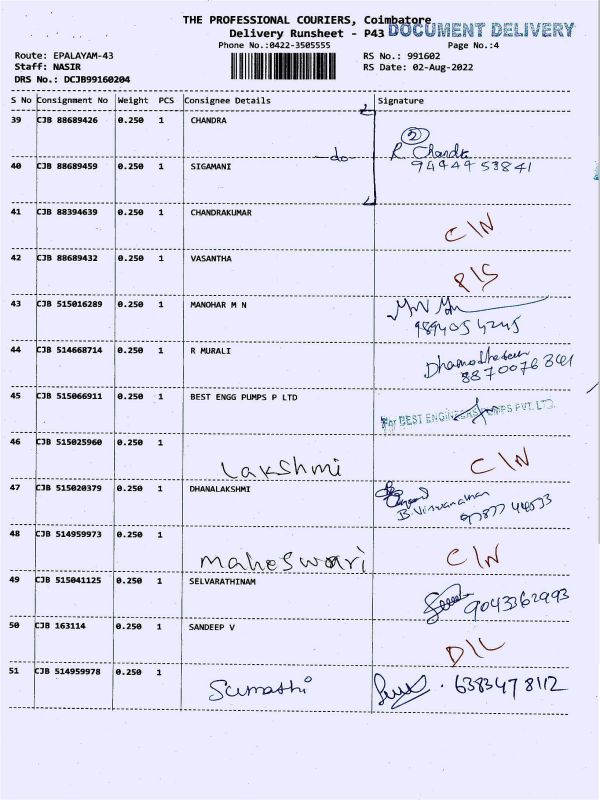 THE PROFESSIONAL COURIERS, Coimbatore
Delivery Runsheet - P43 DOCUMENT DELIVERY
Phone No.:0422-3505555 Page No.:4
Route: EPALAYAM-43 RS No.: 991602
Staff: NASIR RS Date: 02-Aug-2022
DRS No.: DCJB99160204
S No Consignment No Weight PCS Consignee Details Signature
39 CJB 88689426 0.250 1 CHANDRA
2
do R. Chandra
40 CJB 88689459 0.250 1 SIGAMANI 9444453841
41 CJB 88394639 0.250 1 CHANDRAKUMAR
C/N
42 CJB 88689432 0.250 1 VASANTHA
P/S
43 CJB 515016289 0.250 1 MANOHAR M N
9894054245
44 CJB 514668714 0.250 1 R MURALI
45 CJB 515066911 0.250 1 BEST ENGG PUMPS P LTD
For BEST ENGINEERS PUMPS PVT. LTD.
46 CJB 515025960 0.250 1
Lakshmi C/N
47 CJB 515020379 0.250 1 DHANALAKSHMI
B. Viswanathan
48 CJB 514959973 0.250 1
maheswari C/N
49 CJB 515041125 0.250 1 SELVARATHINAM
9043362993
50 CJB 163114 0.250 1 SANDEEP V
D/L
51 CJB 514959978 0.250 1
Sumathi 6383478112